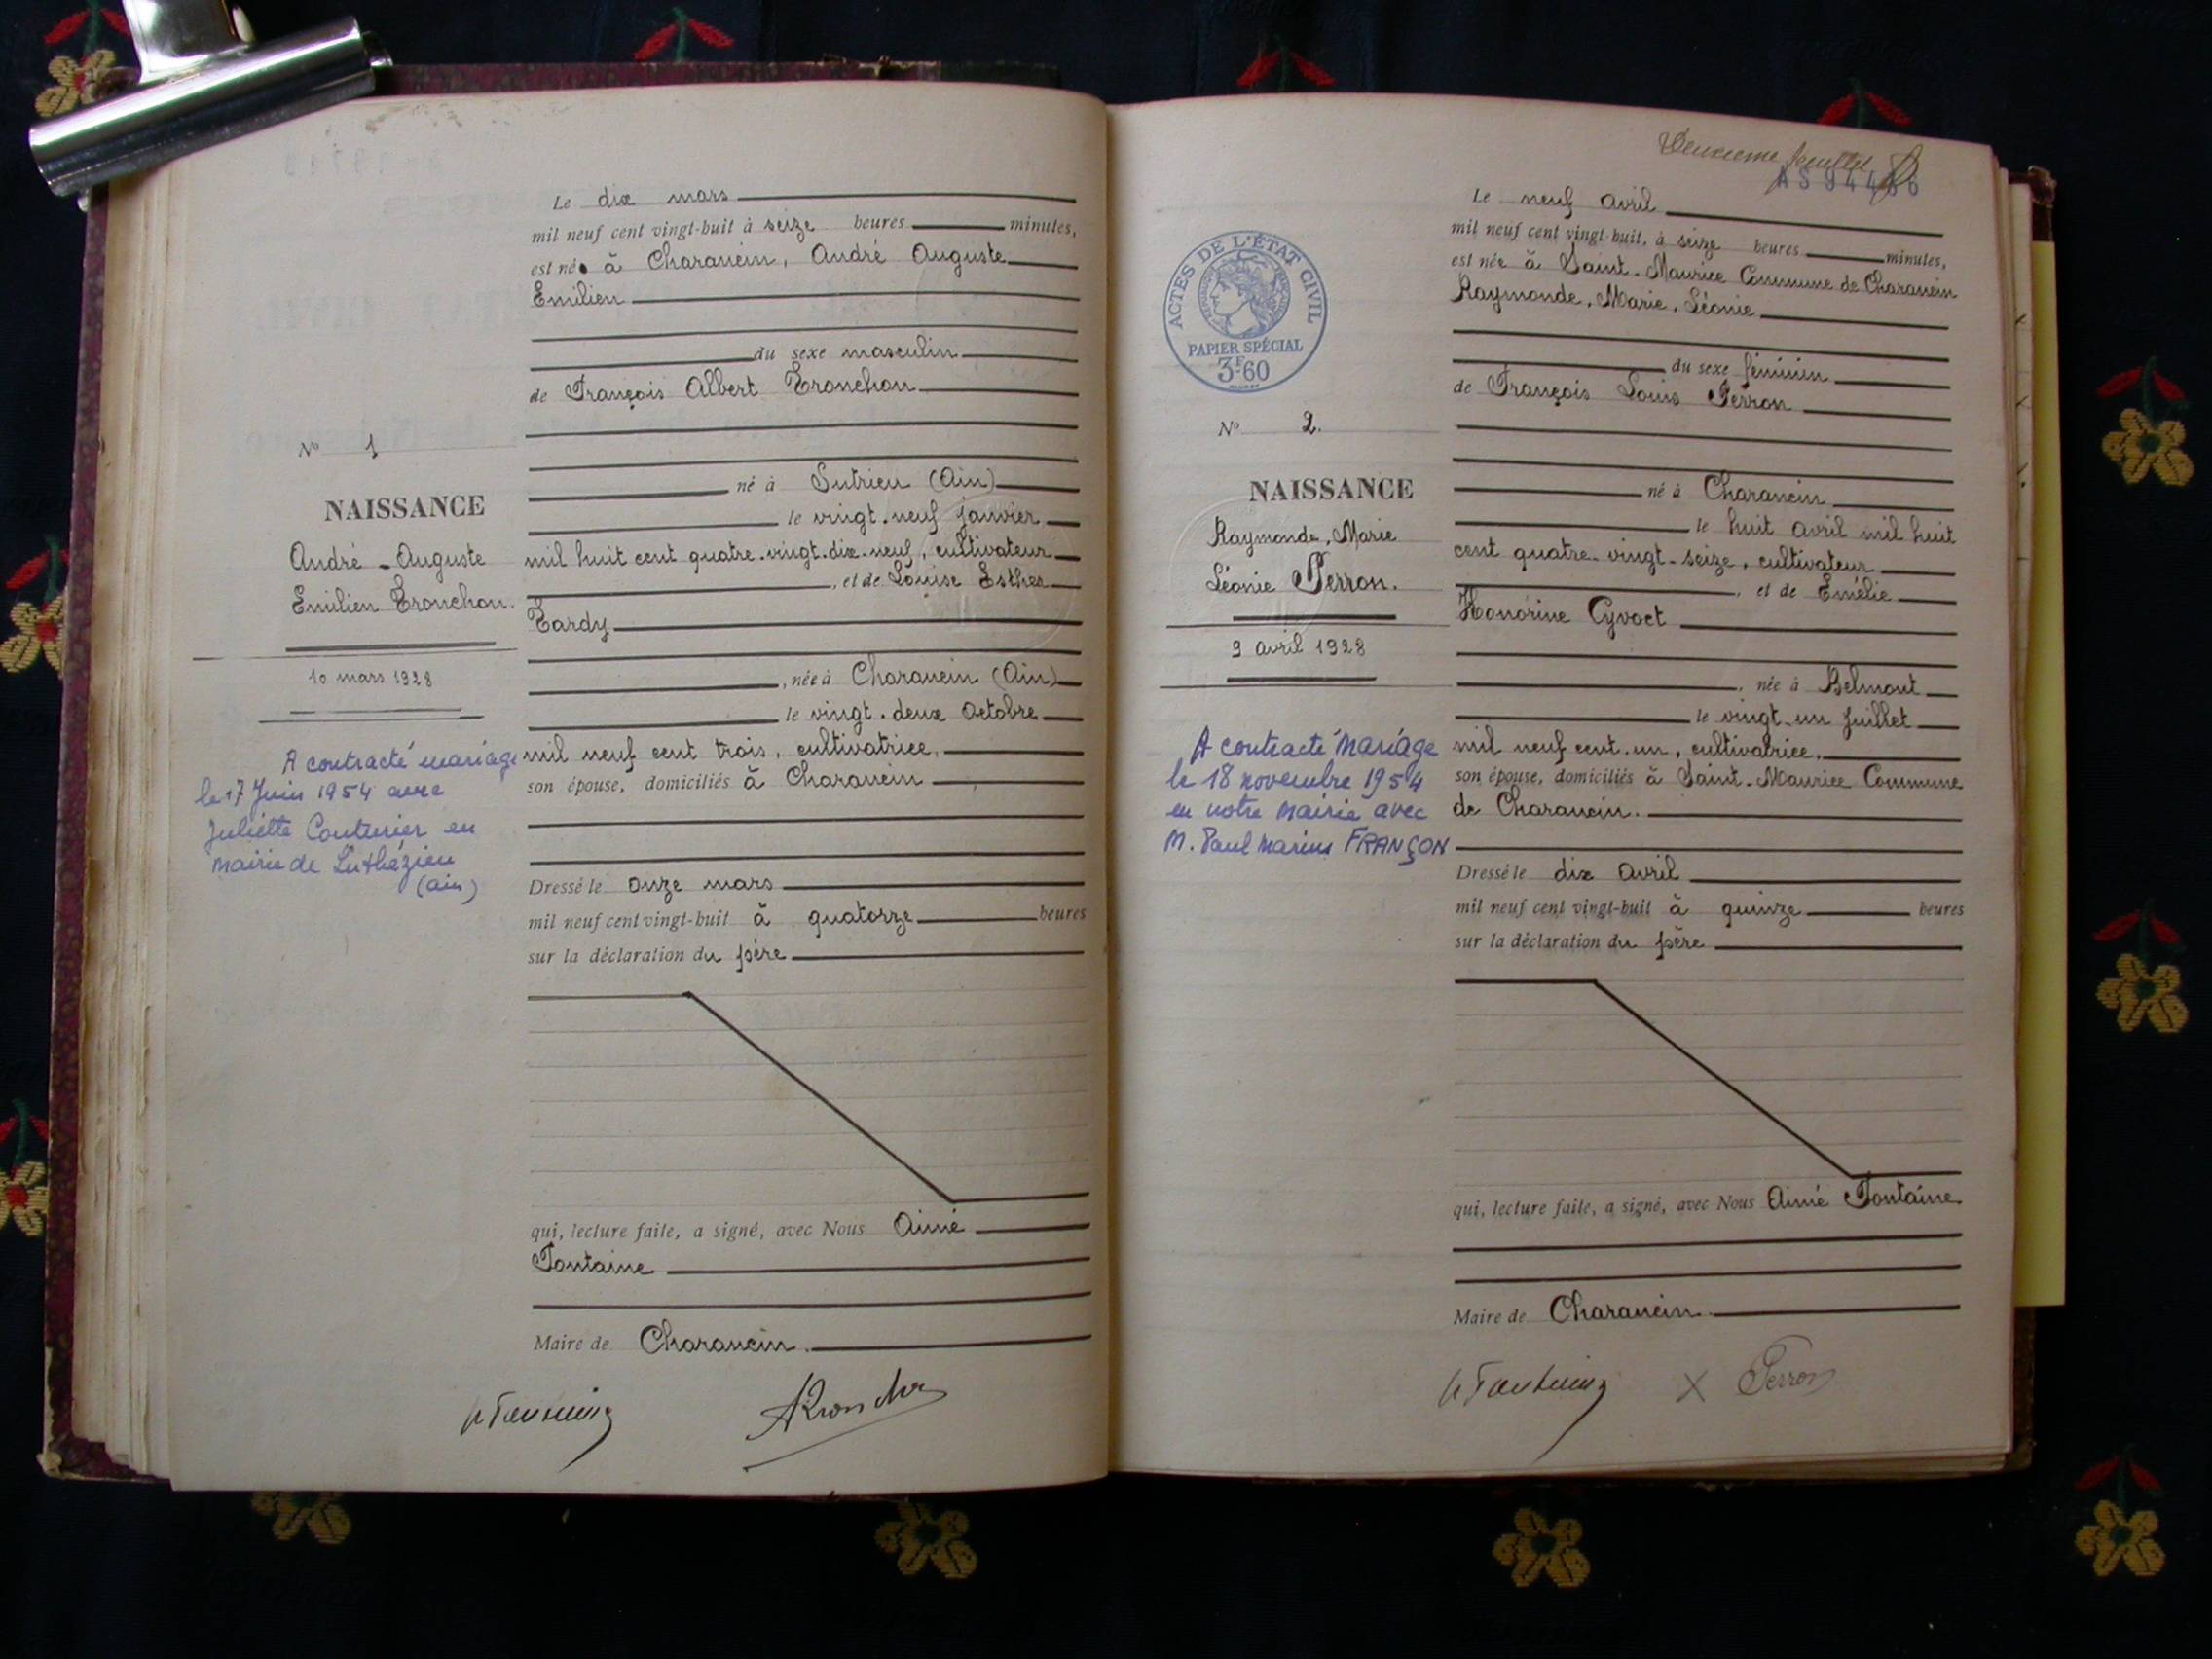 Le dix mars
mil neuf cent vingt-huit à seize heures minutes,
est né à Charancin, André Auguste
Emilien
du sexe masculin
de François Albert Tronchon
né à Sutrieu (Ain)
le vingt-neuf janvier
mil huit cent quatre-vingt-dix-neuf, cultivateur
, et de Louise Esther
Tardy
, née à Charancin (Ain)
le vingt-deux Octobre
mil neuf cent trois, cultivatrice,
son épouse, domiciliés à Charancin
Dressé le onze mars
mil neuf cent vingt-huit à quatorze heures
sur la déclaration du père
qui, lecture faite, a signé, avec Nous Aimé
Fontaine
Maire de Charancin.
No 1
NAISSANCE
André - Auguste
Emilien Tronchon.
10 mars 1928
A contracté mariage
le 17 Juin 1954 avec
Juliette Couturier en
mairie de Luthézieu
(ain)
Deuxième feuillet
ACTES DE L'ÉTAT CIVIL
PAPIER SPÉCIAL
3F.60
No 2.
NAISSANCE
Raymonde, Marie
Léonie Perron.
9 avril 1928
A contracté mariage
le 18 novembre 1954
en notre mairie avec
M. Paul Marius FRANÇON
Le neuf avril
mil neuf cent vingt-huit, à seize heures minutes,
est née à Saint-Maurice Commune de Charancin
Raymonde, Marie, Léonie
du sexe féminin
de François Louis Perron
né à Charancin
le huit avril mil huit
cent quatre-vingt-seize, cultivateur
, et de Emélie
Honorine Cyvoct
, née à Belmont
le vingt-un Juillet
mil neuf cent-un, cultivatrice,
son épouse, domiciliés à Saint-Maurice Commune
de Charancin.
Dressé le dix avril
mil neuf cent vingt-huit à quinze heures
sur la déclaration du père
qui, lecture faite, a signé, avec Nous Aimé Fontaine
Maire de Charancin.
X Perron